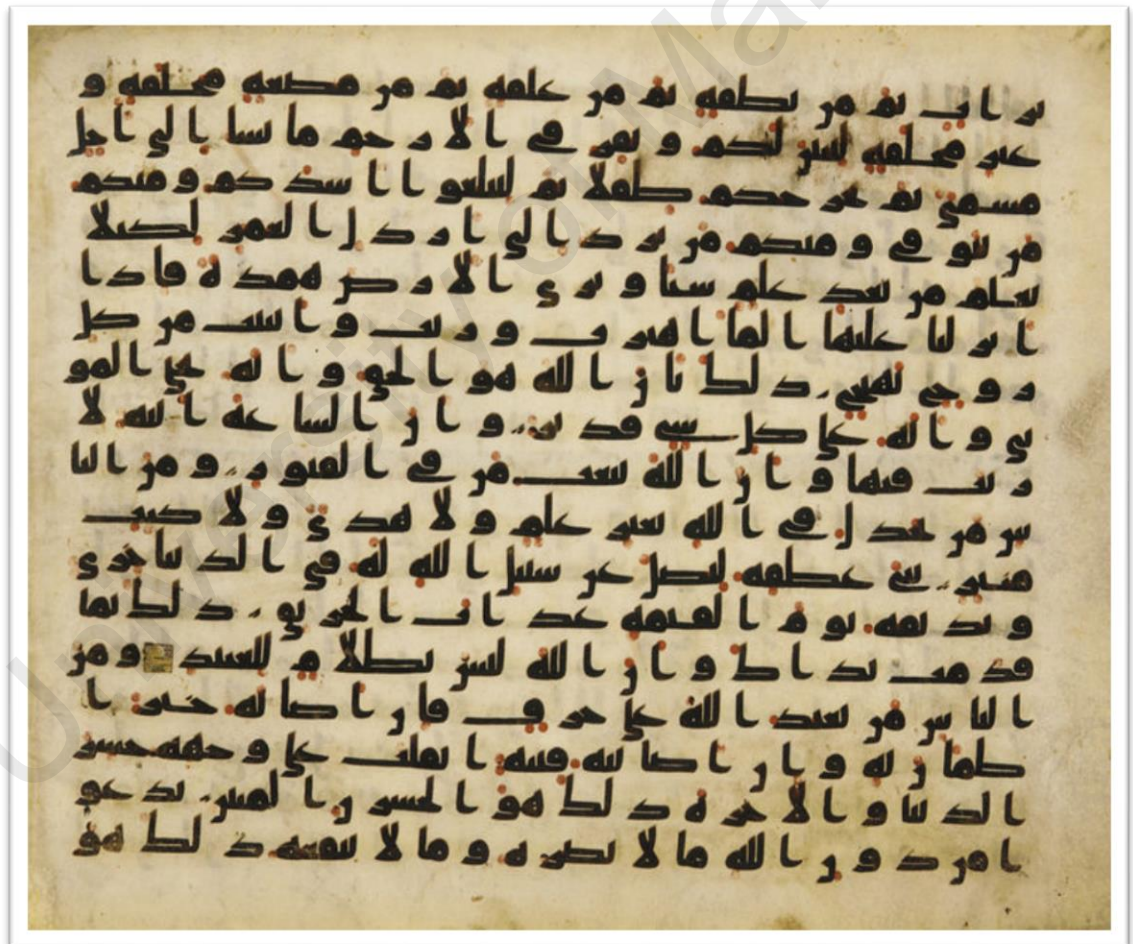 تراب ثم من نطفة ثم من علقة ثم من مضغة مخلقة و
غير مخلقة لنبين لكم و نقر في الارحم ما نشا الى اجل
مسمى ثم نخرجكم طفلا ثم لتبلغوا اشدكم ومنكم
من يتوفى ومنكم من يرد الى ارذل العمر لكيلا
يعلم من بعد علم شيا وترى الارض همدة فاذا
انزلنا عليها الما اهتزت وربت وانبتت من كل
زوج بهيج ذلك بان الله هو الحق وانه يحي المو
تى وانه على كل شي قدير وان الساعة اتية لا
ريب فيها وان الله يبعث من في القبور ومن النا
س من يجدل في الله بغير علم ولا هدى ولا كتب
منير ثنى عطفه ليضل عن سبيل الله له في الدنيا خزى
ونذيقه يوم القيمة عذاب الحريق ذلك بما
قدمت يداك وان الله ليس بظلام للعبيد ومن
الناس من يعبد الله على حرف فان اصابه خير ا
طمان به وان اصابته فتنة انقلب على وجهه خسر
الدنيا والاخرة ذلك هو الخسرن المبين يدعو
ا من دون الله ما لا يضره وما لا ينفعه ذلك هو
University of Ma